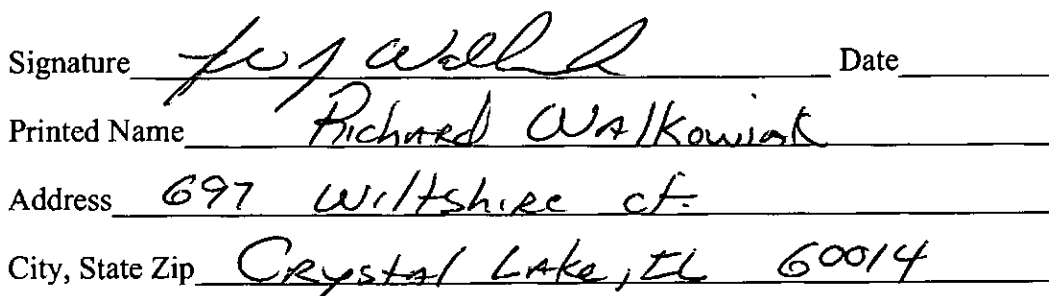 Signature Date
Printed Name Richard Walkowiak
Address 697 Wiltshire ct.
City, State Zip Crystal Lake, IL 60014